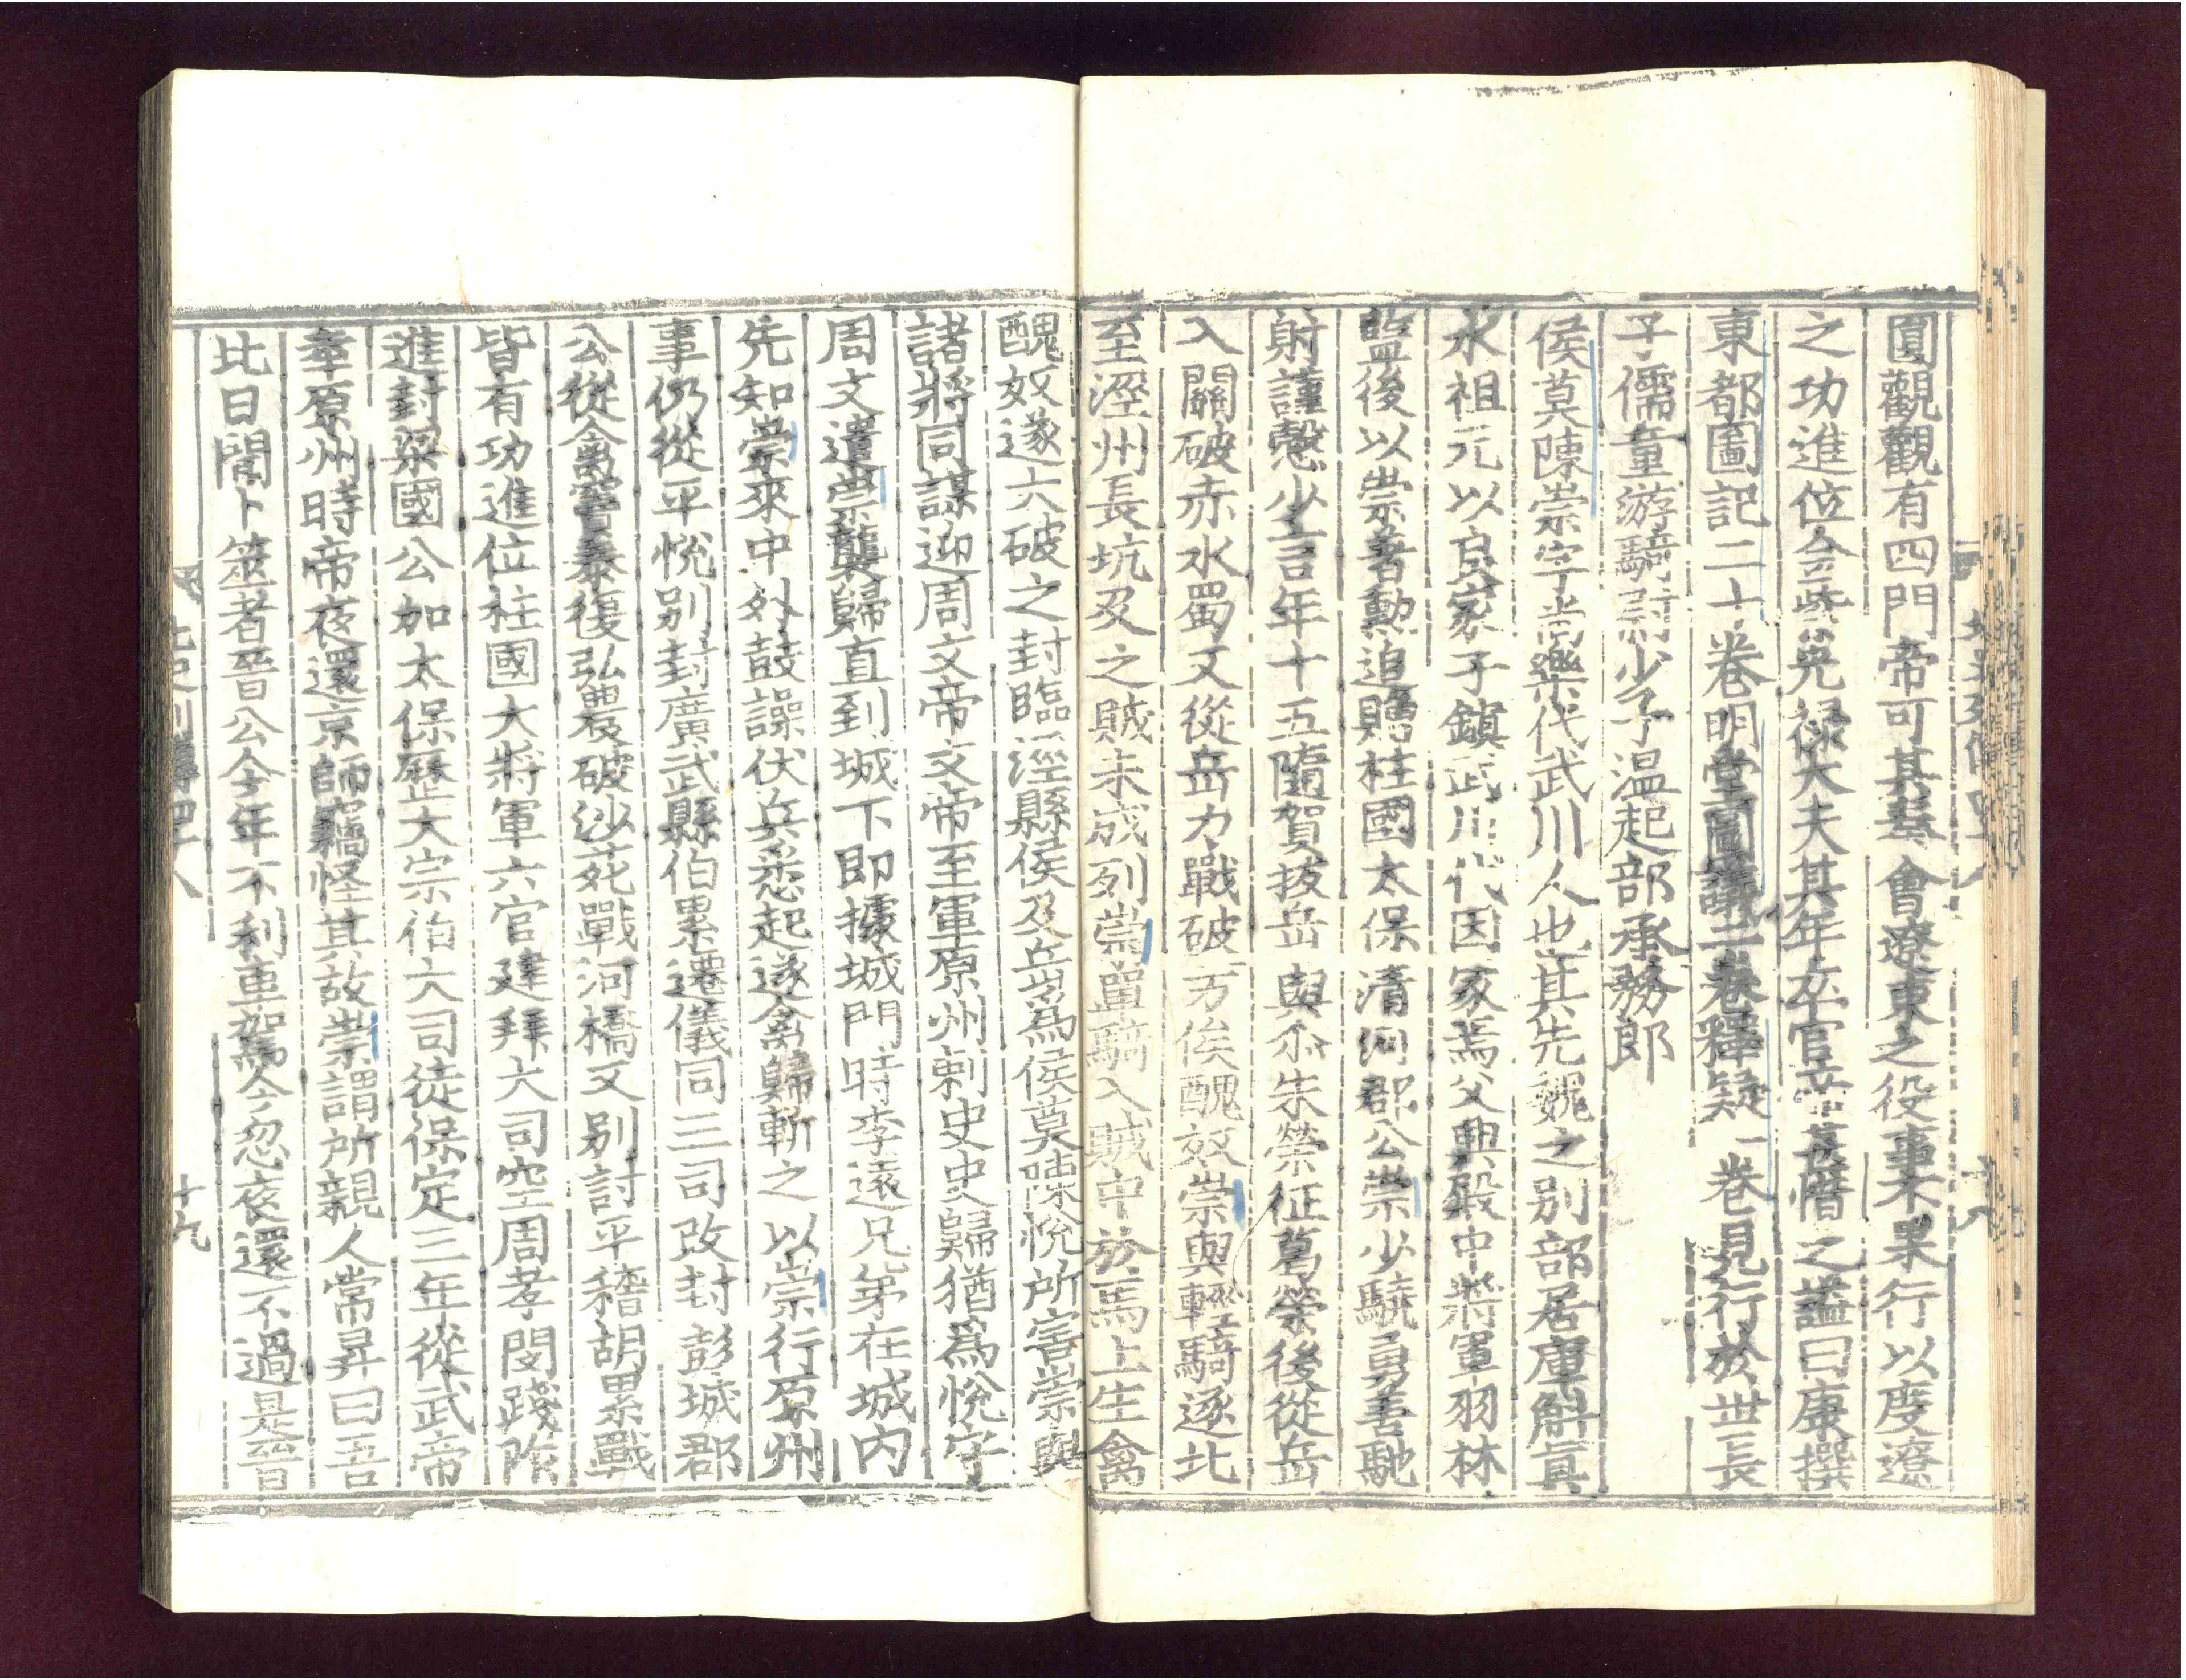 圎觀觀有四門帝可其奏會遼東之役事不果行以度遼
之功進位金紫光祿大夫其年卒官帝甚惜之謚曰康撰
東都圖記二十卷明堂圖議二卷釋疑一卷見行於世長
子儒童游騎尉少子温起部承務郎
侯莫陳崇字尚樂代武川人也其先魏之别部居庫斛眞
水祖元以良家子鎮武川代因家焉父興殿中將軍羽林
監後以崇著勳追贈柱國太保清河郡公崇少驍勇善馳
射謹慤少言年十五隨賀拔岳與尒朱榮征葛榮後從岳
入關破赤水蜀又從岳力戰破万俟醜奴崇與輕騎逐北
至涇州長坑及之賊未成列崇單騎入賊中於馬上生禽
醜奴遂大破之封臨涇縣侯及岳爲侯莫陳悅所害崇與
諸將同謀迎周文帝文帝至軍原州刺史史歸猶爲悅守
周文遣崇襲歸直到城下即據城門時李遠兄弟在城内
先知崇來中外鼓譟伏兵悉起遂禽歸斬之以崇行原州
事仍從平悅别封廣武縣伯累遷儀同三司改封彭城郡
公從禽竇泰復弘農破沙苑戰河橋又别討平稽胡累戰
皆有功進位柱國大將軍六官建拜大司空周孝閔踐阼
進封梁國公加太保歷大宗伯大司徒保定三年從武帝
幸原州時帝夜還京師竊怪其故崇謂所親人常昇曰吾
比日聞卜筮者晉公今年不利車駕今忽夜還不過是晉
北史列傳四十八
十九